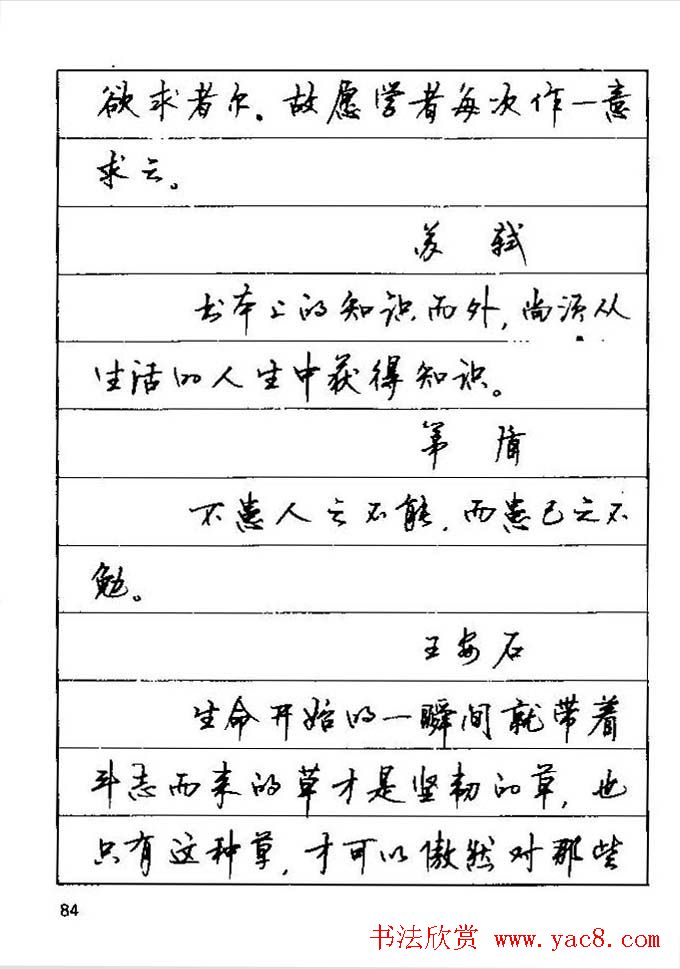 欲求者尔。故愿学者每次作一意
求之。
苏轼
书本上的知识而外，尚须从
生活的人生中获得知识。
茅盾
不患人之不能，而患己之不
勉。
王安石
生命开始的一瞬间就带着
斗志而来的草才是坚韧的草，也
只有这种草，才可以傲然对那些
84
书法欣赏 www.yac8.com